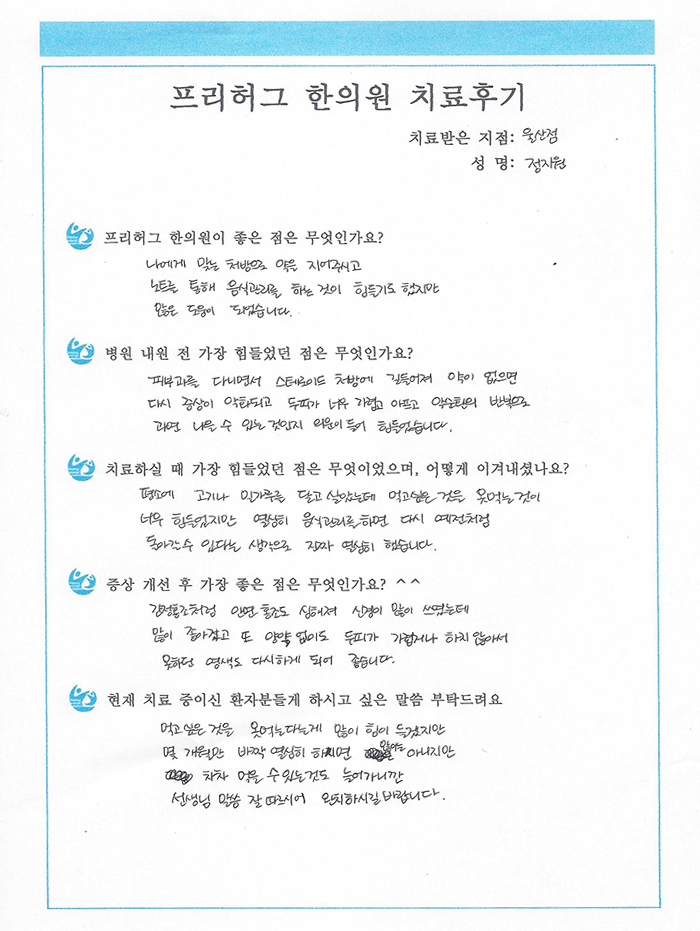 프리허그 한의원 치료후기
치료받은 지점: 울산점
성 명: 정지원
프리허그 한의원이 좋은 점은 무엇인가요?
나에게 맞는 처방으로 약을 지어주시고
노트를 통해 음식관리를 하는 것이 힘들기도 했지만
많은 도움이 되었습니다.
병원 내원 전 가장 힘들었던 점은 무엇인가요?
피부과를 다니면서 스테로이드 처방에 길들어져 약이 없으면
다시 증상이 악화되고 두피가 너무 가렵고 아프고 악순환의 반복으로
과연 나을 수 있는 것인지 의문이 들어 힘들었습니다.
치료하실 때 가장 힘들었던 점은 무엇이었으며, 어떻게 이겨내셨나요?
평소에 고기나 밀가루를 달고 살았는데 먹고싶은 것을 못먹는 것이
너무 힘들었지만 열심히 음식관리를 하면 다시 예전처럼
돌아갈 수 있다는 생각으로 진짜 열심히 했습니다.
증상 개선 후 가장 좋은 점은 무엇인가요? ^^
감정홍조처럼 안면 홍조도 심해져 신경이 많이 쓰였는데
많이 좋아졌고 또 양약 없이도 두피가 가렵거나 하지 않아서
못하던 염색도 다시하게 되어 좋습니다.
현재 치료 중이신 환자분들게 하시고 싶은 말씀 부탁드려요
먹고싶은 것을 못먹는다는게 많이 힘이 들겠지만
몇 개월만 바짝 열심히 하시면 아니지만
차차 먹을 수 있는것도 늘어가니깐
선생님 말씀 잘 따르시어 완치하시길 바랍니다.